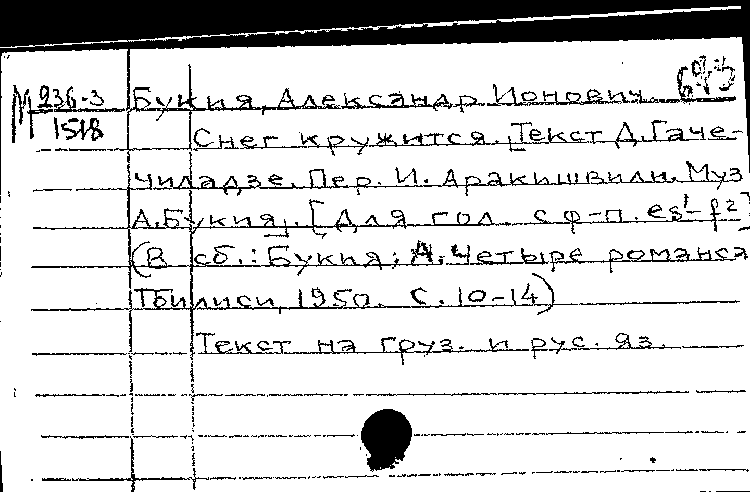 М 236-3
1518
Букия, Александр Ионович.
Снег кружится. [Текст Д. Гаче-
чиладзе. Пер. И. Аракишвили. Муз
А. Букия]. [Для гол. с ф-п. es¹-f²]
(В сб.: Букия, А. Четыре романса
Тбилиси, 1950. С. 10-14)
Текст на груз. и рус. яз.